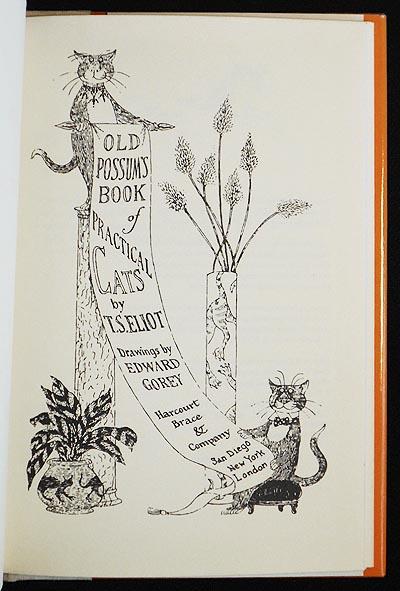 OLD
POSSUM'S
BOOK
of
PRACTICAL
CATS
by
T.S. ELIOT
Drawings by
EDWARD
GOREY
Harcourt
Brace
&
Company
San Diego
New York
London